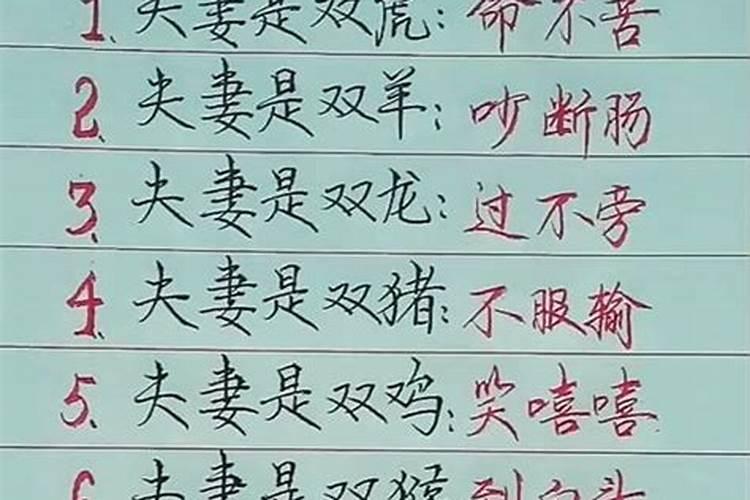 1、夫妻是双虎：命不苦
2、夫妻是双羊；吵断肠
3、夫妻是双龙：过不旁
4、夫妻是双猪：不服输
5、夫妻是双鸡：笑嘻嘻
6、夫妻是双猴 到白头